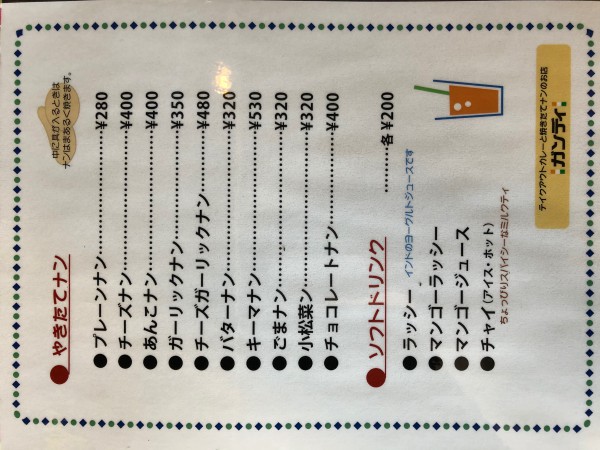 ● やきたてナン
中に具が入るときは
ナンはまあるく焼きます。
● プレーンナン………………¥280
● チーズナン………………¥400
● あんこナン………………¥400
● ガーリックナン…………¥350
● チーズガーリックナン……¥480
● バターナン………………¥320
● キーマナン………………¥530
● ごまナン…………………¥320
● 小松菜ナン………………¥320
● チョコレートナン…………¥400
● ソフトドリンク …………各¥200
● ラッシー インドのヨーグルトジュースです
● マンゴーラッシー
● マンゴージュース
● チャイ(アイス・ホット)
ちょっぴりスパイシーなミルクティ
テイクアウトカレーと焼きたてナンのお店
ガンディ